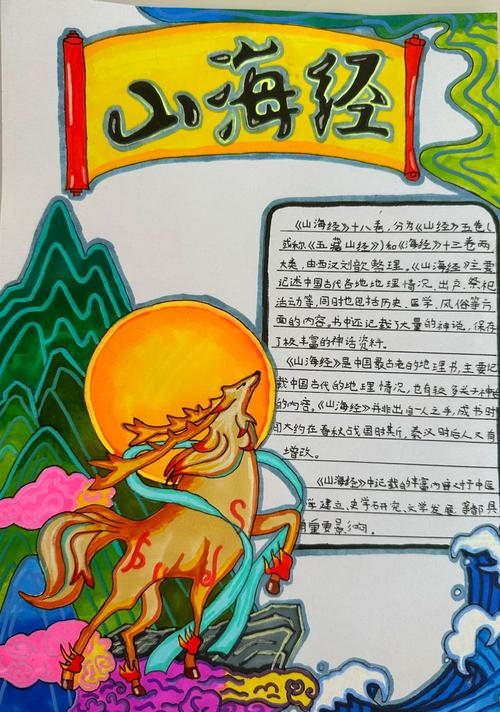 山海经
《山海经》十八卷，分为《山经》五卷(
或称《五藏山经》)和《海经》十三卷两
大类，由西汉刘歆整理。《山海经》主要
记述中国古代各地地理情况、出产、祭祀
活动等，同时也包括历史、医学、风俗等方
面的内容。书中还记载了大量的神说，保存
了极丰富的神话资料。
《山海经》是中国最古老的地理书，主要记
载中国古代的地理情况，也有较多关于神
的内容。《山海经》并非出自一人之手，成书时
间大约在春秋战国时期，秦汉时后人又有
增改。
《山海经》中记载的丰富内容对于中医
学建立、史学研究、文学发展等都具
重要影响。